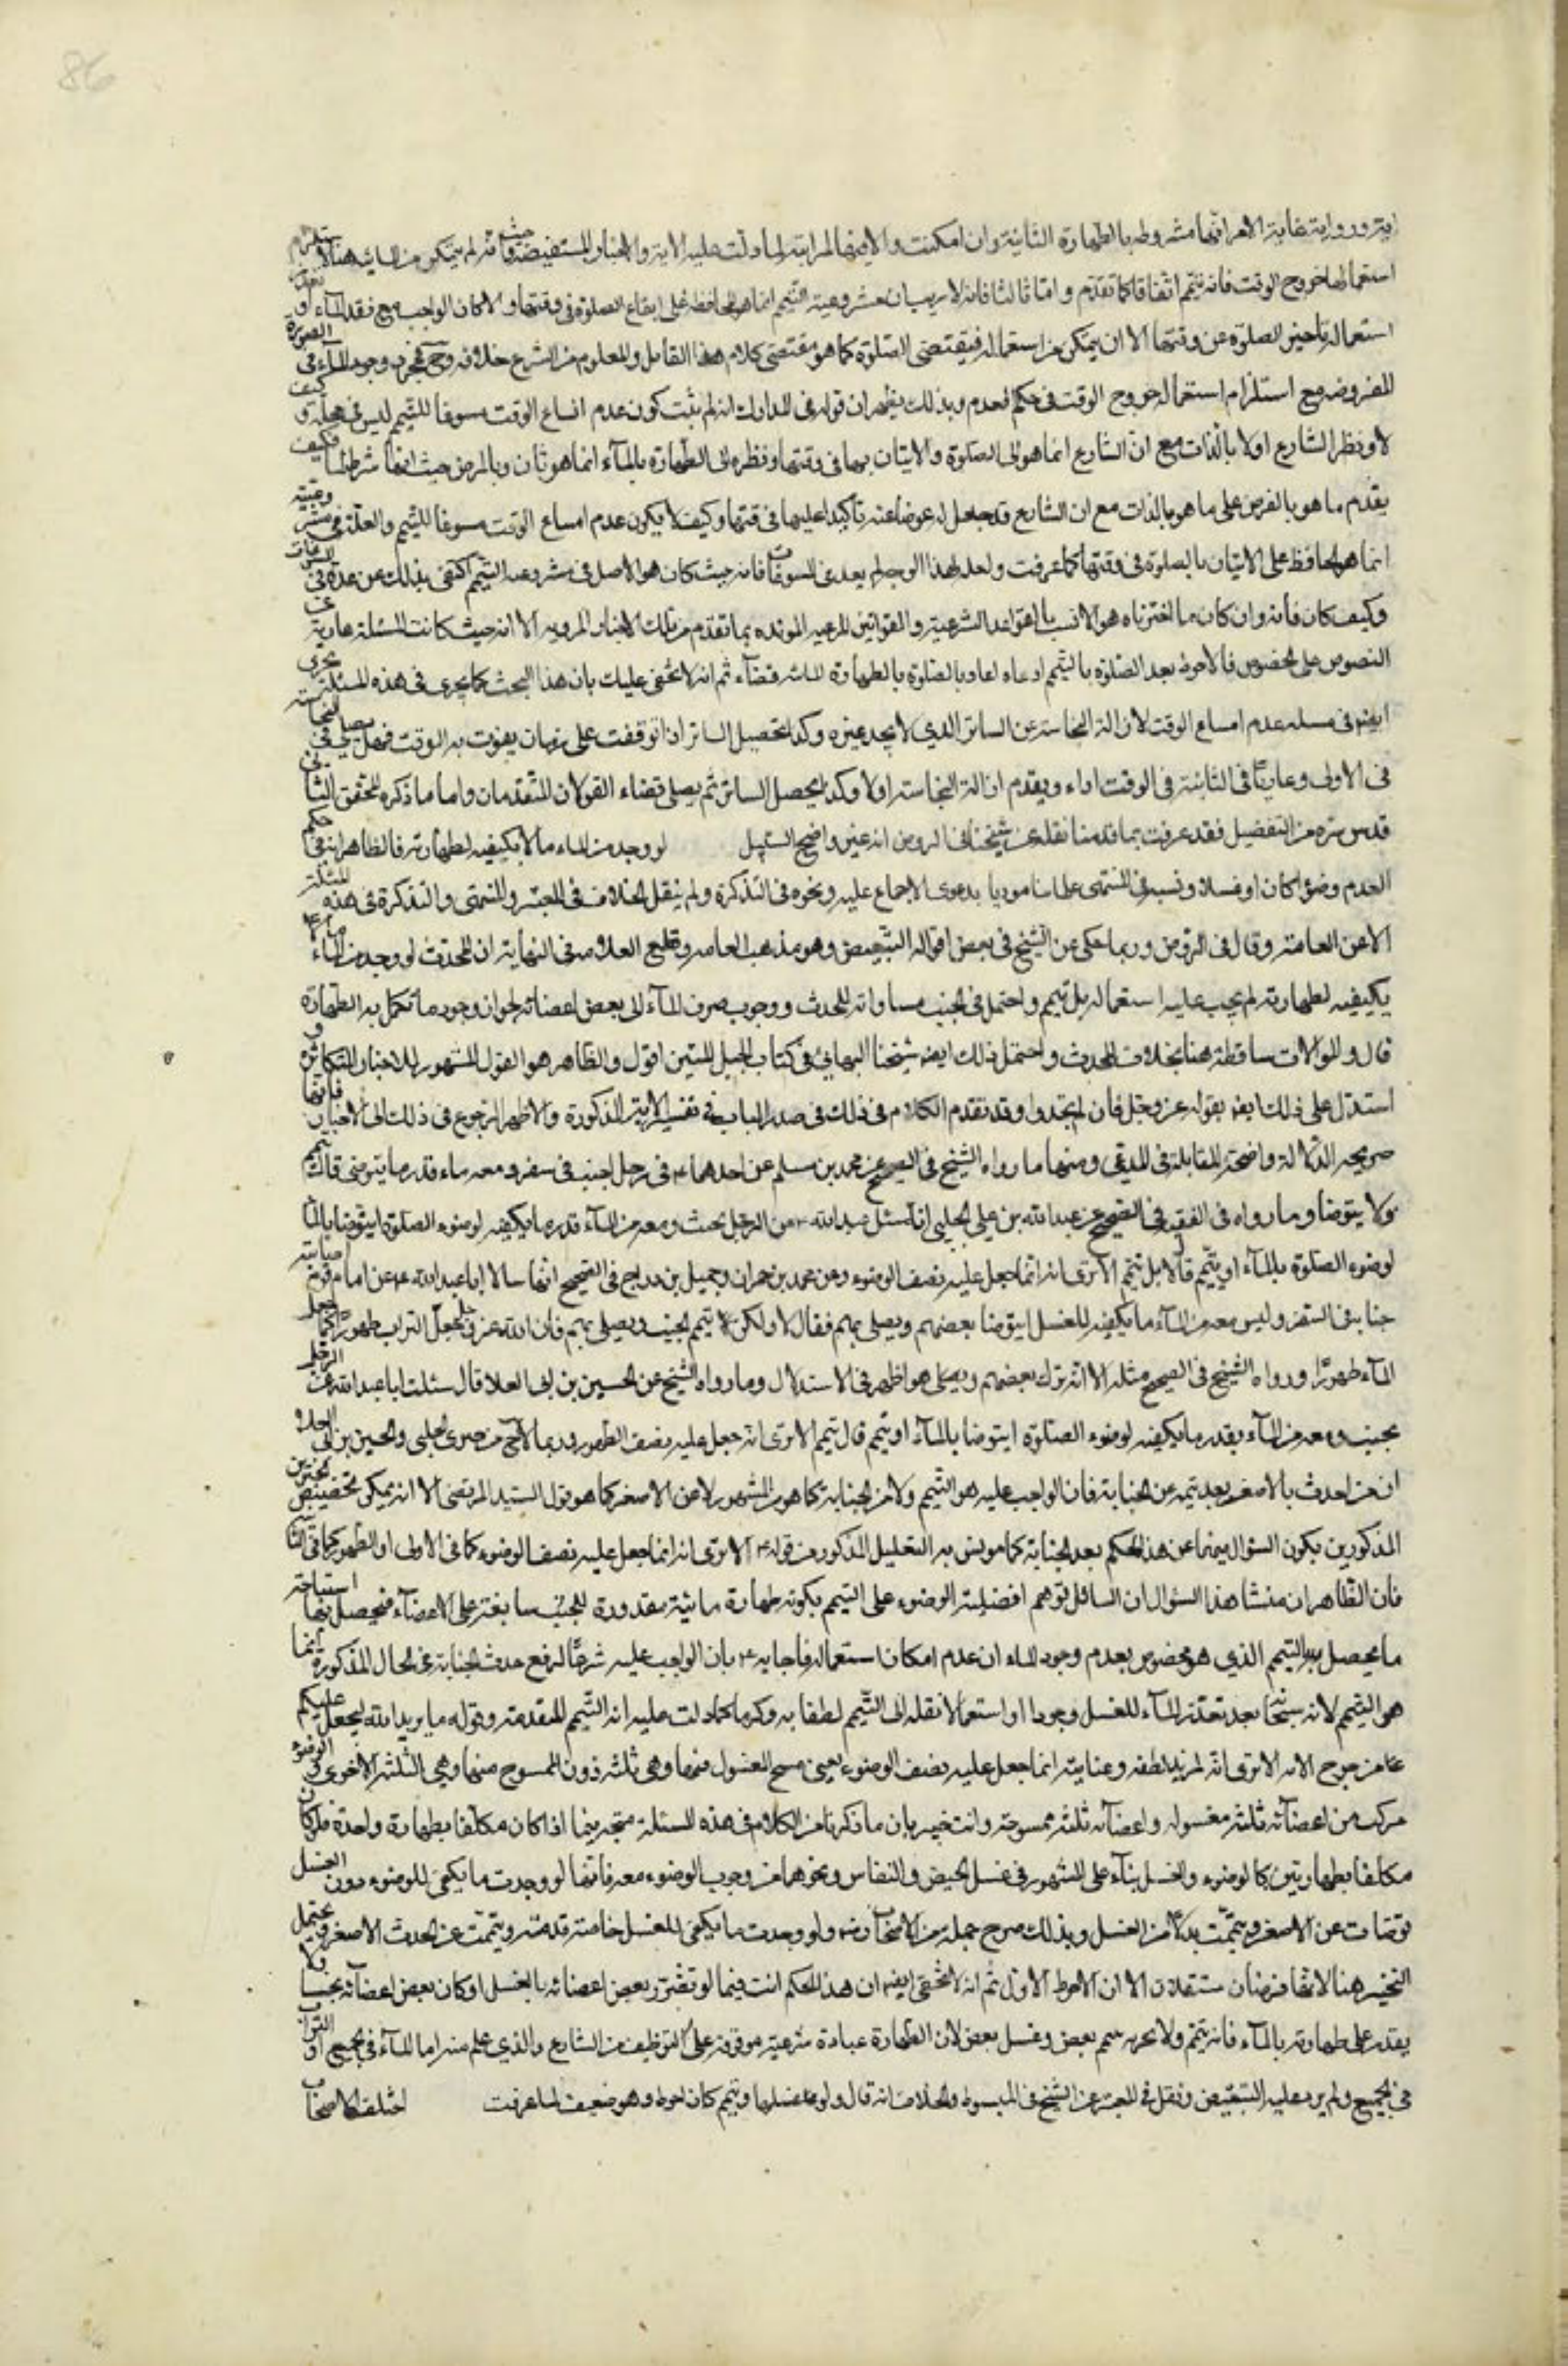 86
اية ورواية غاية الامر انها مشروطة بالطهارة الثانية وان امكنت والا فبالترابية لما دلت عليه الاية والاخبار المستفيضة وحيث انه لم يتمكن من المائية هنا لاستلزام
استعمالها خروج الوقت فانه يتيمم اتفاقا كما تقدم واما ثالثا فانه لا ريب ان مشروعية التيمم انما هو للمحافظة على ايقاع الصلوة في وقتها والا لكان الواجب مع فقد الماء او تعذر
استعماله تاخير الصلوة عن وقتها الا ان يتمكن من استعماله فيقتضى الصلوة كما هو مقتضى كلام هذا القايل والمعلوم من الشرع خلافه وح فمجرد وجود الماء في الصورة
المفروضة مع استلزام استعماله خروج الوقت في حكم العدم وبذلك يظهر ان قوله في المدارك انه لم يثبت كون عدم اتساع الوقت مسوغا للتيمم ليس في محله وكيف
لا ونظر الشارع اولا بالذات مع ان الشارع انما هو الى الصلوة والاتيان بها في وقتها ونظره الى الطهارة بالماء انما هو ثان وبالعرض حيث انها شرط لها فكيف
يقدم ما هو بالعرض على ما هو بالذات مع ان الشارع قد جعل له عوضا عنه تاكيدا عليها في وقتها وكيف لا يكون عدم اتساع الوقت مسوغا للتيمم والعلة في مشروعيته
انما هو المحافظة على الاتيان بالصلوة في وقتها كما عرفت ولعله لهذا الوجه لم يعد في المسوغات فانه حيث كان هو الاصل في مشروعية التيمم اكتفى بذلك عن عده في المسوغات
وكيف كان فانه وان كان ما اخترناه هو الانسب بالقواعد الشرعية والقوانين المرعية المؤيده بما تقدم من تلك الاخبار المروية الا انه حيث كانت المسئلة عارية عن
النصوص على الخصوص فالاحوط بعد الصلوة بالتيمم اداء اعادة الصلوة بالطهارة المائية قضاء ثم انه لا يخفى عليك بان هذا البحث كما يجرى في هذه المسئلة يجرى
ايضا في مسئلة عدم اتساع الوقت لازالة النجاسة عن الساتر الذي لا يجد غيره وكذا تحصيل الساتر اذا توقفت على زمان يفوت به الوقت فهل يصلي في النجاسة
في الاولى وعاريا في الثانية في الوقت اداء ويقدم ازالة النجاسة اولا وكذا يحصل الساتر ثم يصلي قضاء القولان المتقدمان واما ما ذكره المحقق الثاني
قدس سره من التفضيل فقد عرفت بما قدمنا نقله عن شيخنا في الروض انه غير واضح السبيل لو وجد من الماء ما لا يكفيه لطهارته فالظاهر انه في حكم
العدم وضوءا كان او غسلا ونسبه في المنتهى الى علمائنا موذنا بدعوى الاجماع عليه ونحوه في التذكرة ولم ينقل الخلاف في المعتبر والمنتهى والتذكرة في هذه المسئلة
الا عن العامة وقال في الروض وربما حكى عن الشيخ في بعض اقواله التبعيض وهو مذهب العامة وقطع العلامة في النهاية ان المحدث لو وجد من الماء ما لا
يكفيه لطهارته لم يجب عليه استعماله بل يتيمم واحتمل في الجنب مساواته للمحدث ووجوب صرف الماء الى بعض اعضائه لجواز وجود ما تكمل به الطهارة
قال والموالات ساقطة هنا بخلاف المحدث واحتمل ذلك ايضا شيخنا البهائي في كتاب الحبل المتين اقول والظاهر هو القول المشهور للاخبار المتكاثرة و
استدل على ذلك ايضا بقوله عز وجل فان لم تجدوا وقد تقدم الكلام في ذلك في صدر الباب في تفسير الاية المذكورة والاظهر الرجوع في ذلك الى الاخبار فانها
صريحه الدلالة واضحة المقابلة في المدعى ومنها ما رواه الشيخ في الصحيح عن محمد بن مسلم عن احدهما ع في رجل اجنب في سفر ومعه ماء قدر ما يتوضى قال يتيمم
ولا يتوضا وما رواه في الفقيه في الصحيح عن عبيد الله بن علي الحلبي انه سئل ابا عبد الله ع عن الرجل يجنب ومعه من الماء قدر ما يكفيه لوضوء الصلوة ايتوضا بالماء
لوضوء الصلوة بالماء او يتيمم قال لا بل يتيمم الا ترى انه انما جعل عليه نصف الوضوء وعن محمد بن حمران وجميل بن دراج في الصحيح انهما سالا ابا عبد الله ع عن امام قوم اصابته
جنابة في السفر وليس معه من الماء ما يكفيه للغسل ايتوضا بعضهم ويصلي بهم فقال لا ولكن يتيمم الجنب ويصلي بهم فان الله عز وجل جعل التراب طهورا كما جعل
الماء طهورا ورواه الشيخ في الصحيح مثله الا انه ترك بعضهم ويصلى هو اظهر في الاستدلال وما رواه الشيخ عن الحسين بن ابي العلا قال سئلت ابا عبد الله عن الرجل
يجنب ومعه من الماء بقدر ما يكفيه لوضوء الصلوة ايتوضا بالماء او يتيمم قال يتيمم الا ترى انه جعل عليه نصف الطهور وربما لاح من خبرى الحلبي والحسين بن ابي العلا
ان من احدث بالاصغر بعد تيممه عن الجنابة فان الواجب عليه هو التيمم بدلا من الجنابة كما هو المشهور لا من الاصغر كما هو قول السيد المرتضى الا انه يمكن تخصيص الخبرين
المذكورين بكون السؤال فيهما عن هذا الحكم بعد الجنابة كما يونس به التعليل المذكور من قوله ع الا ترى انه انما جعل عليه نصف الوضوء كما في الاولى او الطهور كما في الثانية
فان الظاهر ان منشا هذا السؤال ان السائل توهم افضلية الوضوء على التيمم بكونه طهارة مائية مقدورة للجنب سابغة على الاعضاء فيحصل بها استباحة
ما يحصل به التيمم الذي هو مخصوص بعدم وجود الماء او عدم امكان استعماله فاجابه ع بان الواجب عليه شرعا لرفع حدث الجنابة في الحال المذكورة انما
هو التيمم لانه سبحانه بعد تعذر الماء للغسل وجودا او استعمالا نقله الى التيمم لطفا به وكرما كما دلت عليه اية التيمم المتقدمة وقوله ما يريد الله ليجعل عليكم
من حرج الاية الا ترى انه لمزيد لطفه وعنايته انما جعل عليه نصف الوضوء يعني مسح المغسول فيها وهي ثلثة دون الممسوح منها وهي الثلثة الاخرى والوضوء
مركب من اعضائه ثلثة مغسولة واعضائه ثلثة ممسوحة وانت خبير بان ما ذكرنا من الكلام في هذه المسئلة متجه فيما اذا كان مكلفا بطهارة واحدة فلو كان
مكلفا بطهارتين كالوضوء والغسل بناء على المشهور في غسل الحيض والنفاس ونحوهما من وجوب الوضوء معه فانها لو وجدت ما يكفي للوضوء دون الغسل
توضات عن الاصغر وتيممت بدلا من الغسل وبذلك صرح جملة من الاصحاب ولو وجدت ما يكفي للغسل خاصة قدمته وتيممت عن الحدث الاصغر ويحتمل
التخيير هنا لانهما فرضان مستقلان الا ان الاحوط الاول ثم انه لا يخفى ايضا ان هذا الحكم ات فيما لو تضرر بعض اعضائه بالغسل او كان بعض اعضائه نجسا ولا
يقدر على طهارته بالماء فانه يتيمم ولا يجزيه تيمم بعض وغسل بعض لان الطهارة عبادة شرعية موقوفة على التوظيف من الشارع والذي علم منه اما الماء في الجميع او التراب
في الجميع ولم يرد عليه التبعيض ونقل في المعتبر عن الشيخ في المبسوط والخلاف انه قال ولو غسلها وتيمم كان احوط وهو ضعيف لما عرفت اختلف الاصحاب